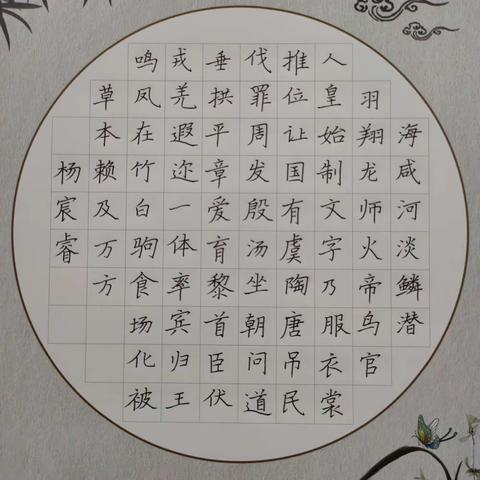 海咸河淡鳞潜
羽翔龙师火帝鸟官
人皇始制文字乃服衣裳
推位让国有虞陶唐吊民
伐罪周发殷汤坐朝问道
垂拱平章爱育黎首臣伏
戎羌遐迩一体率宾归王
鸣凤在竹白驹食场化被
草本赖及万方
杨宸睿